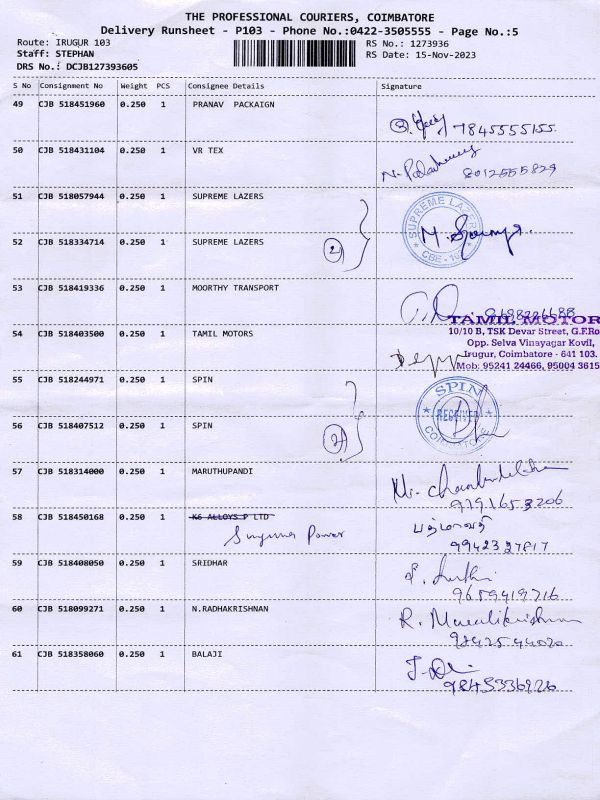 THE PROFESSIONAL COURIERS, COIMBATORE
Delivery Runsheet - P103 - Phone No.:0422-3505555 - Page No.:5
Route: IRUGUR 103
RS No.: 1273936
Staff: STEPHAN
RS Date: 15-Nov-2023
DRS No.: DCJB127393605
S No Consignment No Weight PCS Consignee Details Signature
49 CJB 518451960 0.250 1 PRANAV PACKAIGN
7845555155
50 CJB 518431104 0.250 1 VR TEX
8012555829
51 CJB 518057944 0.250 1 SUPREME LAZERS
SUPREME LAZERS
CBE - 103
2
52 CJB 518334714 0.250 1 SUPREME LAZERS
53 CJB 518419336 0.250 1 MOORTHY TRANSPORT
54 CJB 518403500 0.250 1 TAMIL MOTORS
TAMIL MOTOR
10/10 B, TSK Devar Street, G.F.Ro
Opp. Selva Vinayagar Kovil,
Irugur, Coimbatore - 641 103.
Mob: 95241 24466, 95004 3615
55 CJB 518244971 0.250 1 SPIN
SPIN
RECEIVED
COIMBATORE
2
56 CJB 518407512 0.250 1 SPIN
57 CJB 518314000 0.250 1 MARUTHUPANDI
9791653206
58 CJB 518450168 0.250 1 K6 ALLOYS P LTD
Suguna Power
9942327817
59 CJB 518408050 0.250 1 SRIDHAR
9659419716
60 CJB 518099271 0.250 1 N.RADHAKRISHNAN
R. Muralikrishnan
61 CJB 518358060 0.250 1 BALAJI